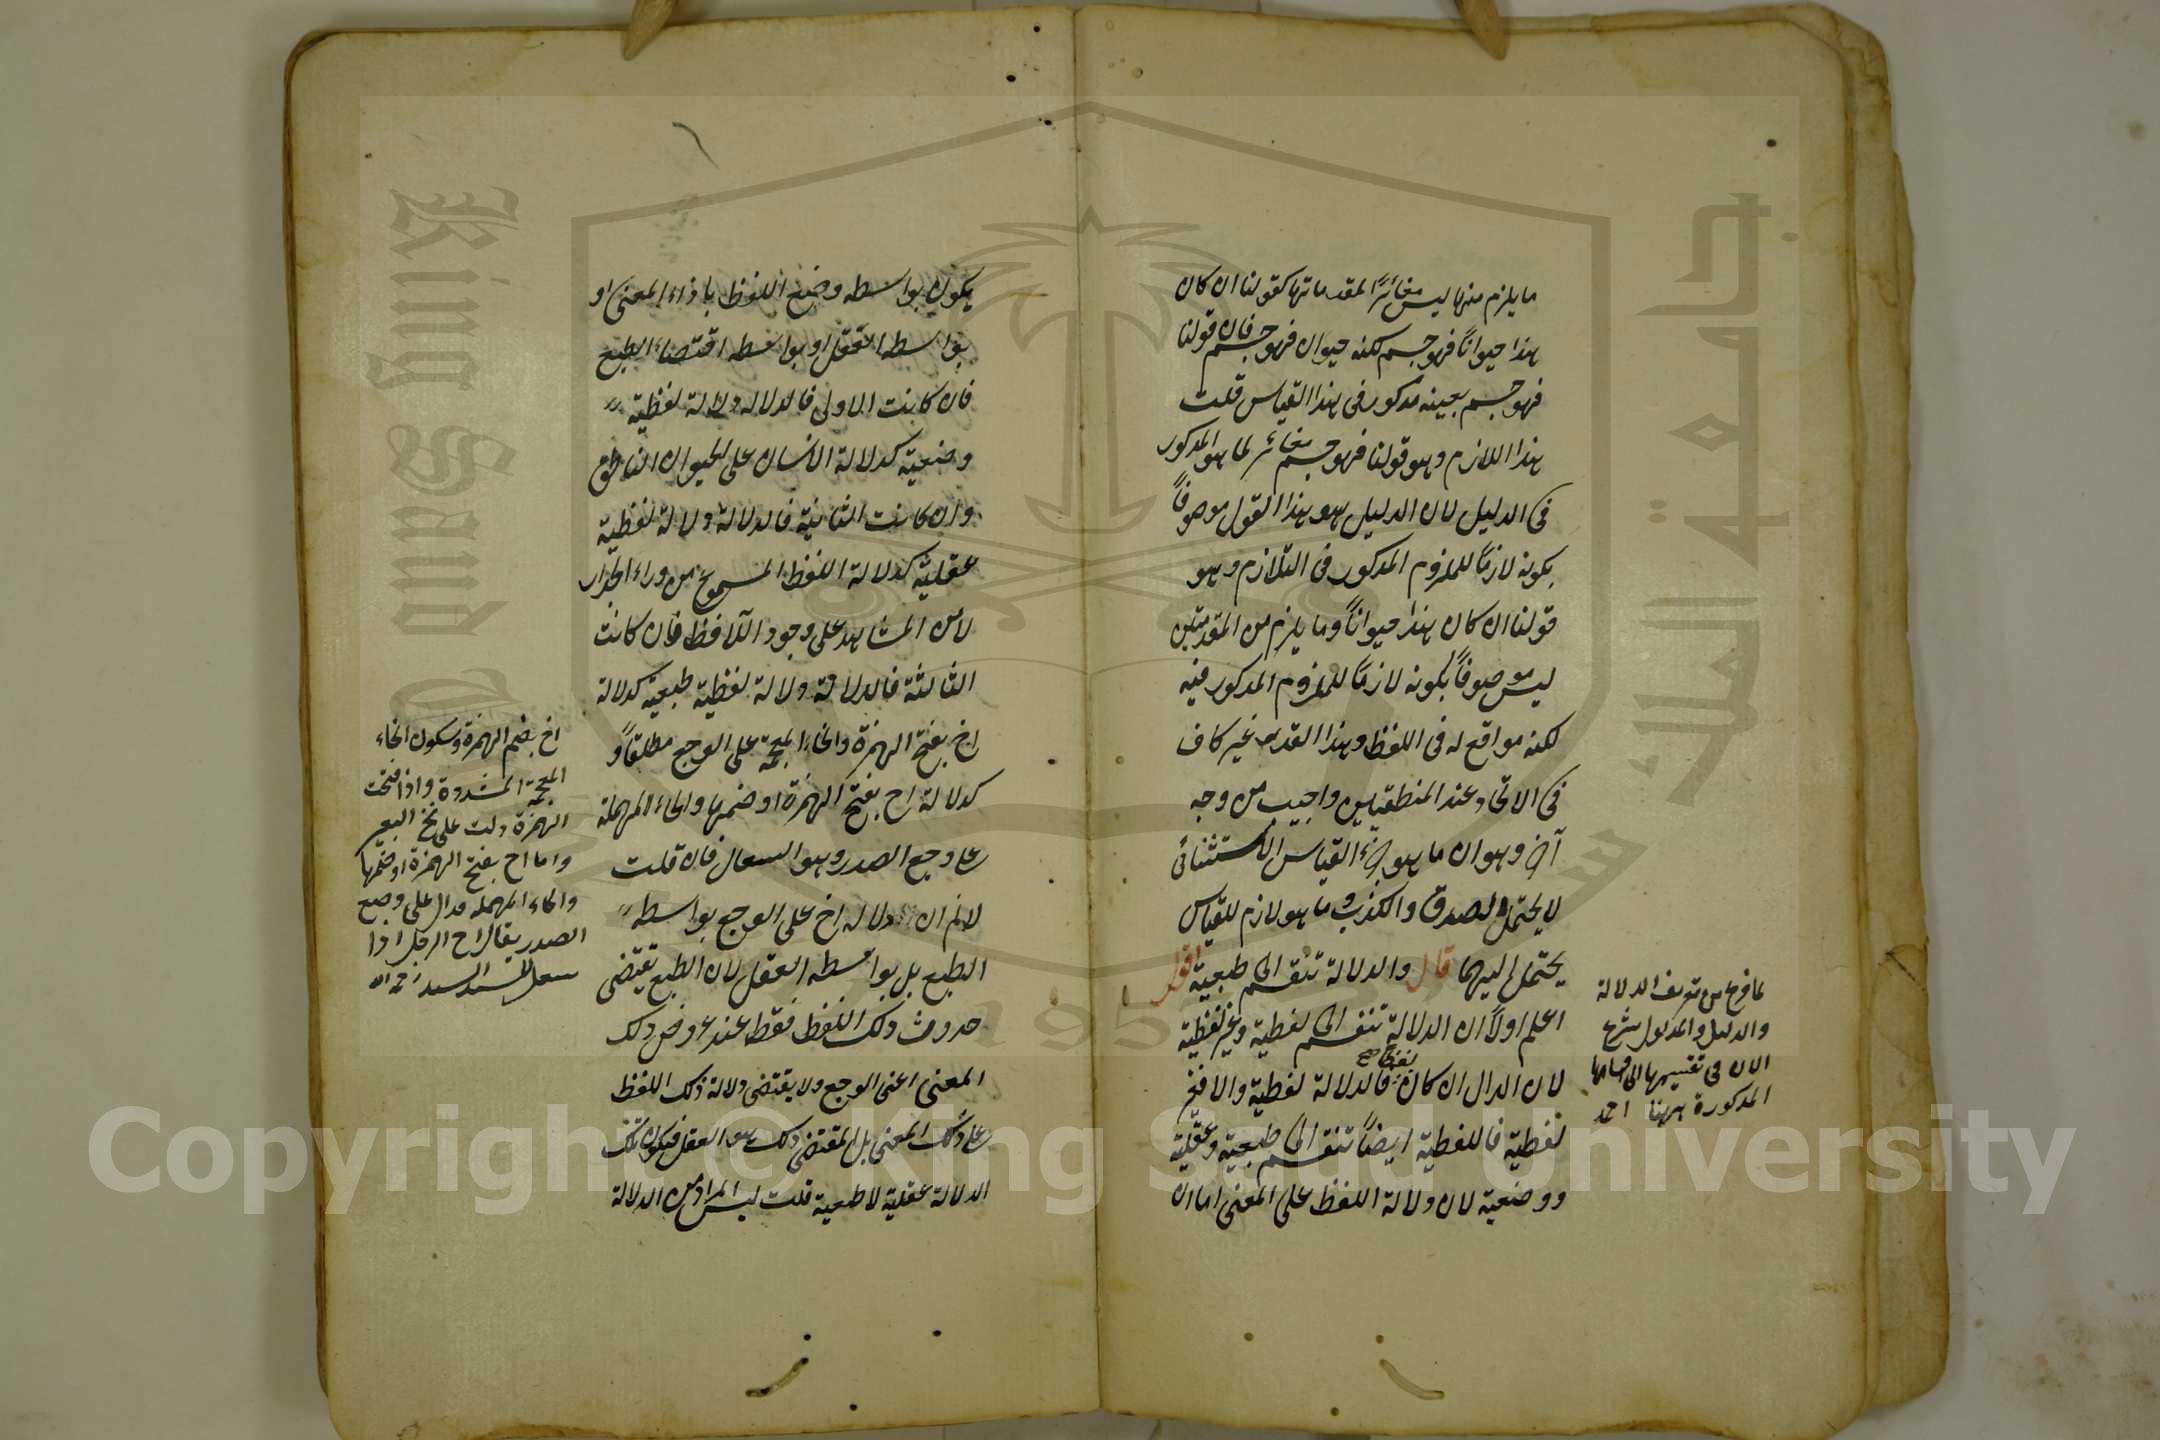 ما يلزم منها ليس مغائرًا لمقدماتها كقولنا ان كان
هذا حيوانًا فهو جسم لكنه حيوان فهو جسم فان قولنا
فهو جسم بعينه مذكور فى هذا القياس قلت
هذا اللازم وهو قولنا فهو جسم مغائر لما هو المذكور
فى الدليل لان الدليل هو هذا القول موصوفًا
بكونه لازمًا للملزوم المذكور فى التلازم وهو
قولنا ان كان هذا حيوانًا وما يلزم من المقدمتين
ليس موصوفًا بكونه لازمًا للملزوم المذكور فيه
لكنه مواقع له فى اللفظ وهذا القدر غير كاف
فى الاتحاد عند المنطقيين واجيب من وجه
آخر وهو ان ما هو جزء القياس الاستثنائى
لا يحتمل الصدق والكذب وما هو لازم للقياس
يحتمل اليهما قال والدلالة تنقسم الى طبعية اقول
اعلم اولًا ان الدلالة تنقسم الى لفظية وغير لفظية
لان الدال ان كان لفظا صح فالدلالة لفظية والا فغير
لفظية فاللفظية ايضًا تنقسم الى طبعية وعقلية
ووضعية لان دلالة اللفظ على المعنى اما ان
لما فرغ من تعريف الدلالة
والدليل والمدلول شرع
الان فى تقسيمها الى اقسامها
المذكورة ههنا احمد
يكون بواسطه وضع اللفظ بازاء المعنى او
بواسطه العقل او بواسطه اقتضاء الطبع
فان كانت الاولى فالدلاله دلالة لفظية
وضعية كدلالة الانسان على الحيوان الناطق
وان كانت الثانية فالدلالة دلالة لفظية
عقلية كدلالة اللفظ المسموع من وراء الجدار
لا من المشاهد على وجود اللافظ فان كانت
الثالثة فالدلالة دلالة لفظية طبعية كدلالة
اخ بفتح الهمزة والخاء المعجمة على الوجع مطلقًا و
كدلالة اح بفتح الهمزة او ضمها والحاء المهملة
على وجع الصدر وهو السعال فان قلت
لانم ان دلاله اخ على الوجع بواسطه
الطبع بل بواسطه العقل لان الطبع يقتضى
حدوث ذلك اللفظ فقط عند عروض ذلك
المعنى اعنى الوجع ولا يقتضى دلالة ذلك اللفظ
على ذلك المعنى بل المقتضى ذلك هو العقل فيكون تلك
الدلالة عقلية لا طبعية قلت ليس المراد من الدلالة
اخ بضم الهمزة وسكون الخاء
المعجمة المشددة واذا فتحت
الهمزة دلت على نخ البعير
واما اح بفتح الهمزة او ضمها
والحاء المهملة فدال على وجع
الصدر يقال اح الرجل اذا
سعل السيد رحمه الله